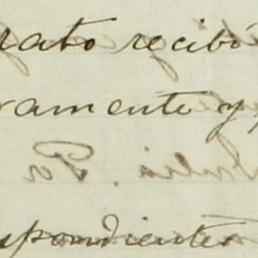 rato recibó
ramente y
spondientes